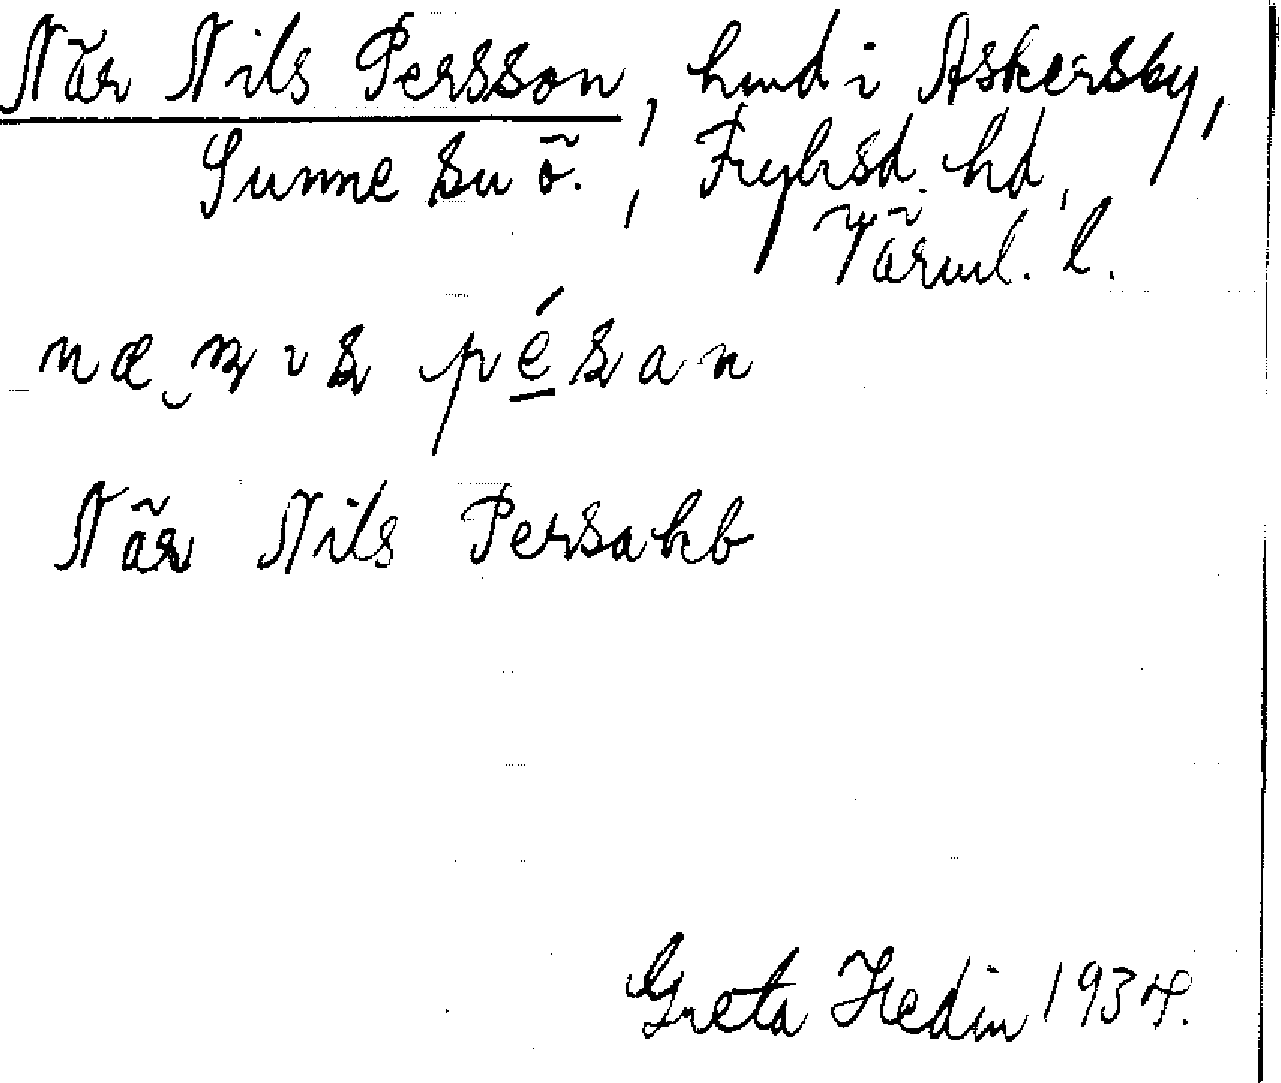 När Nils Persson, hmd i Askersby,
Sunne sn ö., Fryksd. hd,
Värml. l.
När Nils Persahb
Greta Hedin 1934.